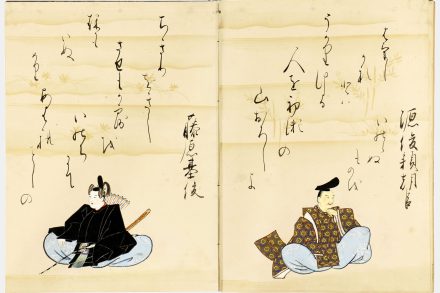 源俊頼朝臣
うかりける
人を初瀬の
山おろしよ
はけし
かれ
とは
いのらぬ
ものを
藤原基俊
ちきり
をきし
させもか露を
いのちにて
あはれことしの
秋も
いぬ
めり